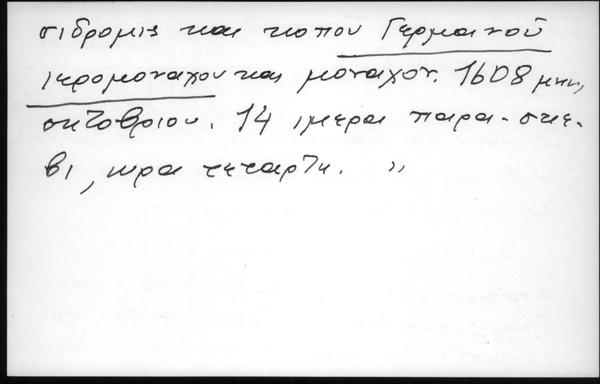 σιδρομις και κοπου Γερμανοῦ
ιερομοναχου και μοναχον. 1608 μην,
οκτοβριου. 14 ιμερα παρα-σκε-
βι, ωρα τεταρτη. "